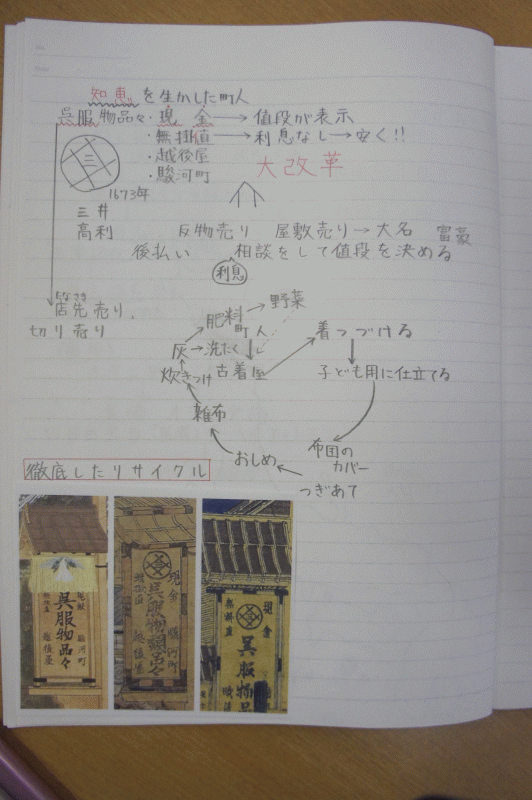 知恵を生かした町人
呉服物品々・現金→値段が表示
・無掛値→利息なし→安く!!
・越後屋
・駿河町
大改革
三
1673年
三井
高利
反物売り 屋敷売り→大名 富豪
後払い 相談をして値段を決める
利息
たなさき
店先売り、
切り売り
肥料→野菜
町人
灰→洗たく
炊きつけ
古着屋
着つづける
子ども用に仕立てる
布団の
カバー
つぎあて
おしめ
雑布
徹底したリサイクル
駿河町
呉服物品々
越後屋
現金
駿河町
呉服物品々
越後屋
現金
無掛直
呉服物品